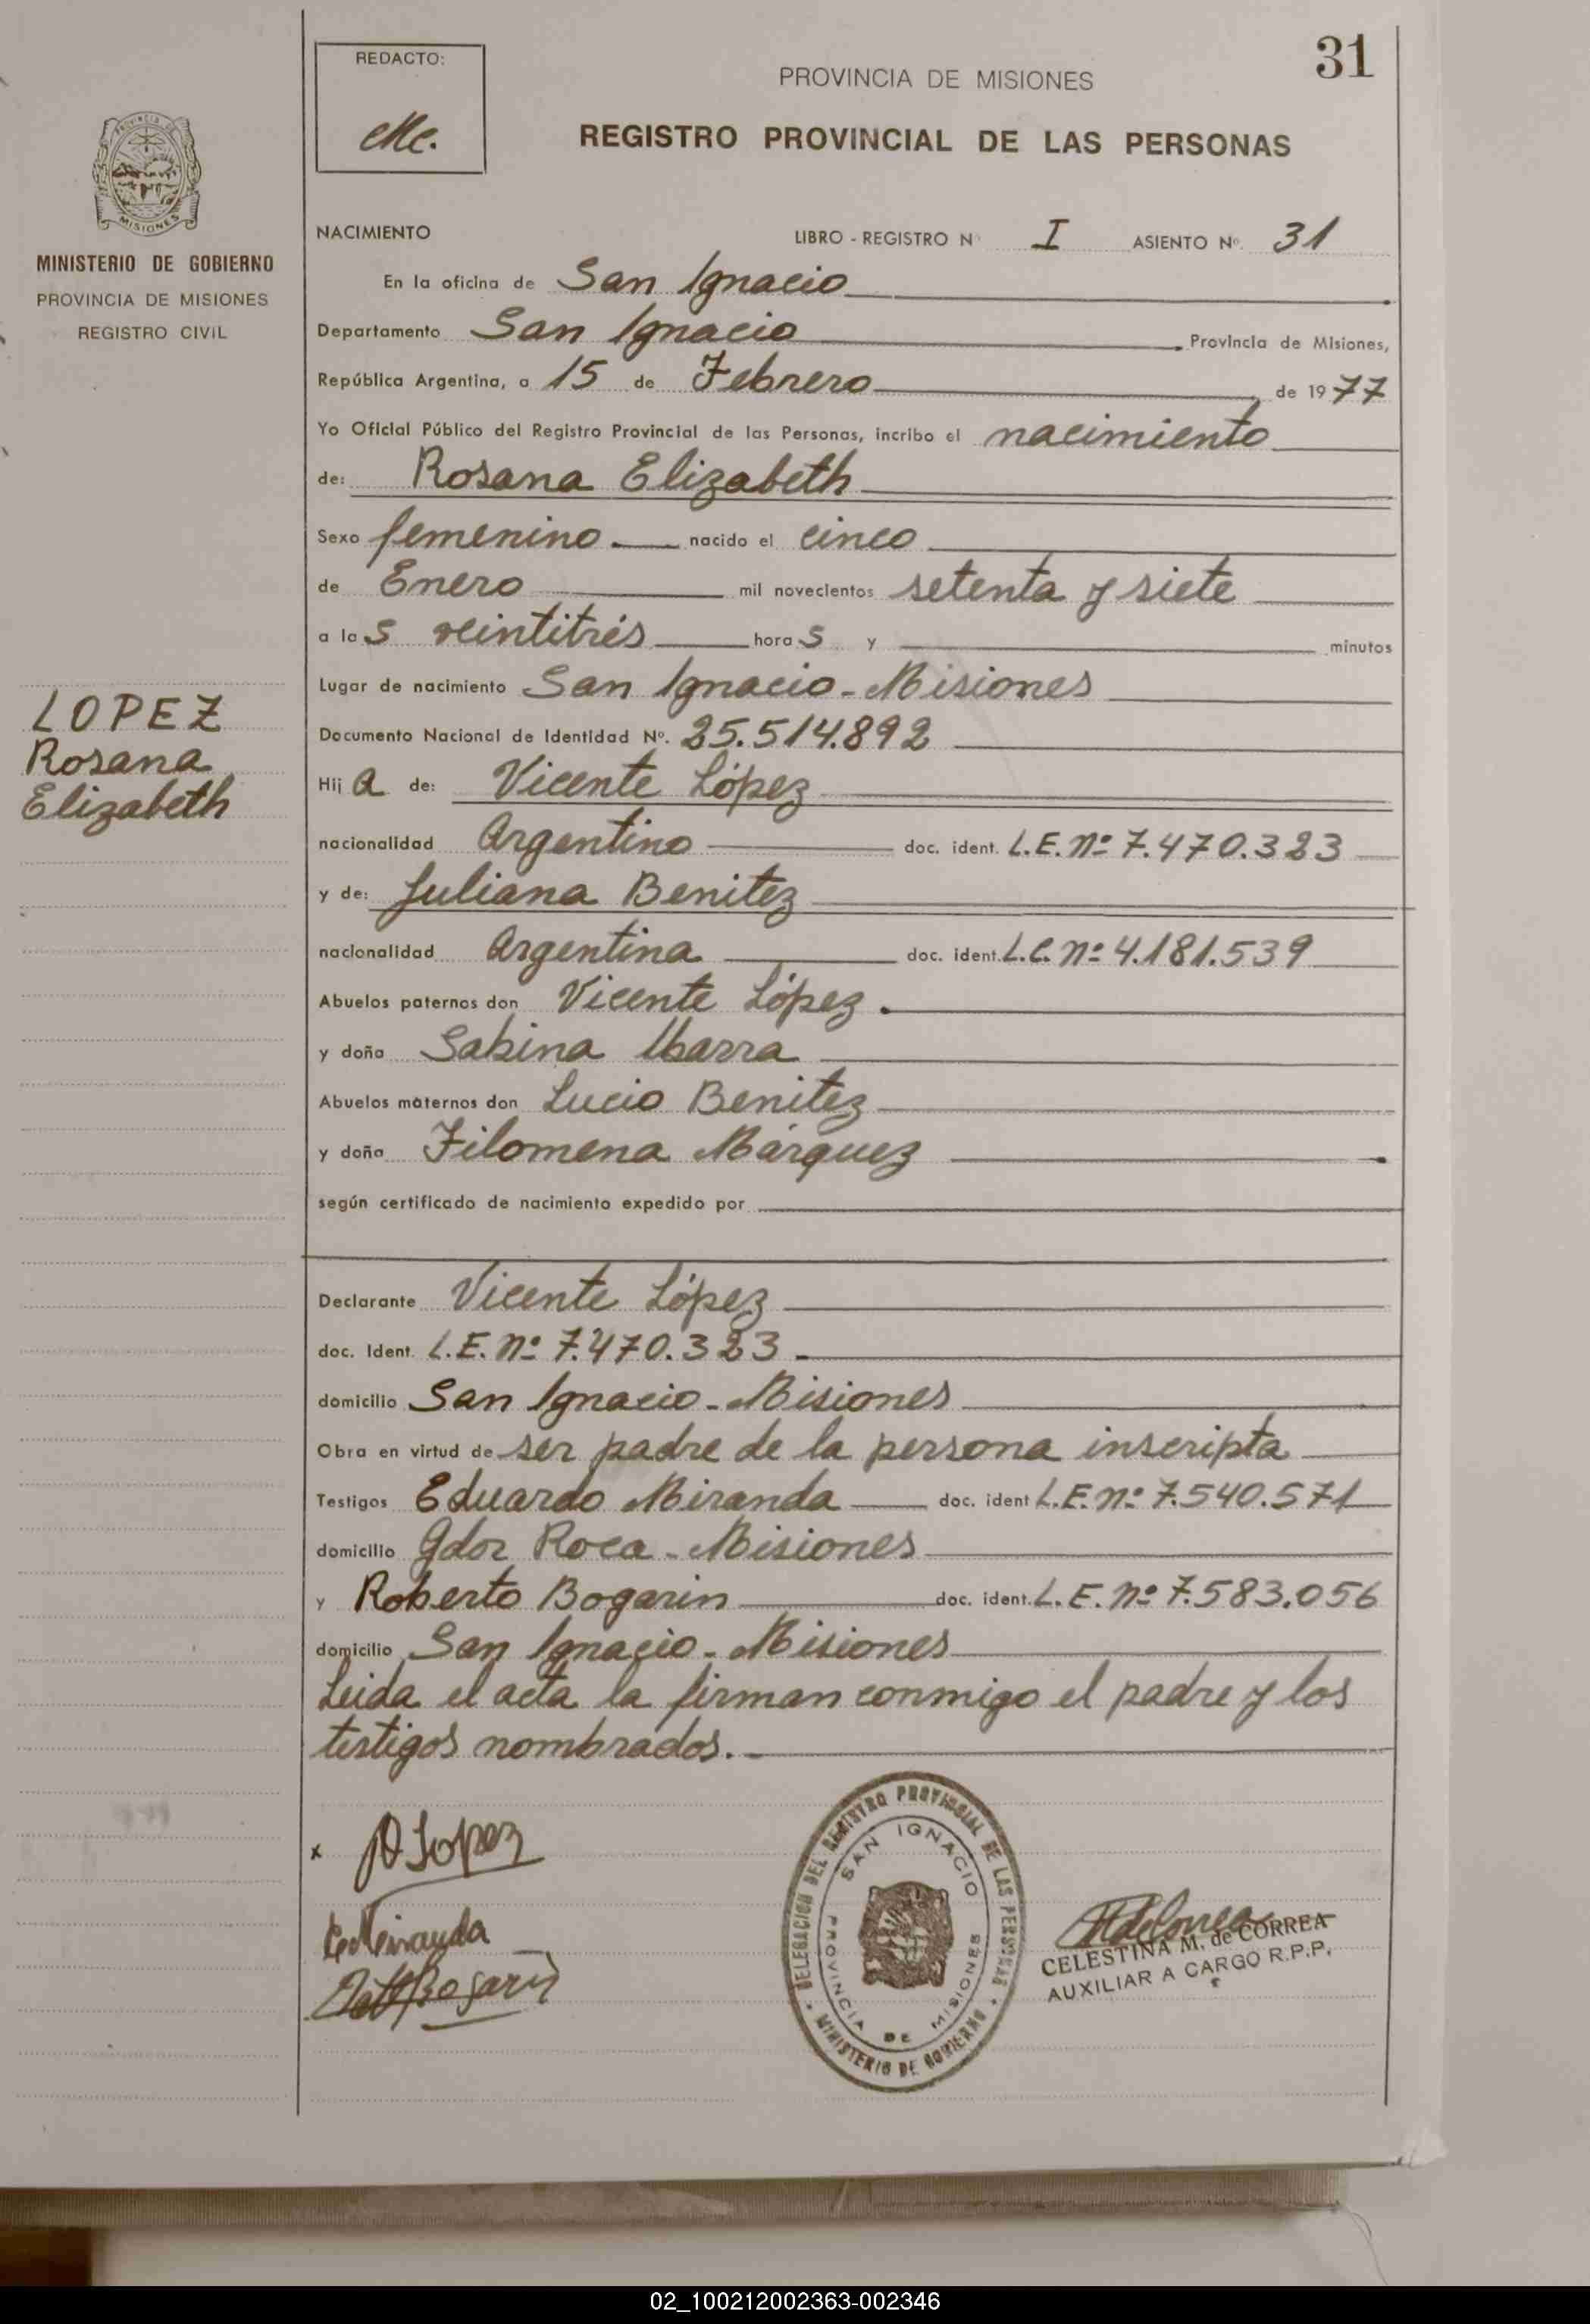 31
REDACTO:
Mc.
PROVINCIA DE MISIONES
REGISTRO PROVINCIAL DE LAS PERSONAS
PROVINCIA DE
MISIONES
MINISTERIO DE GOBIERNO
PROVINCIA DE MISIONES
REGISTRO CIVIL
LOPEZ
Rosana
Elizabeth
NACIMIENTO LIBRO - REGISTRO Nº I ASIENTO Nº. 31
En la oficina de San Ignacio
Departamento San Ignacio Provincia de Misiones,
República Argentina, a 15 de Febrero de 1977
Yo Oficial Público del Registro Provincial de las Personas, incribo el nacimiento
de: Rosana Elizabeth
Sexo femenino. nacido el cinco
de Enero mil novecientos setenta y siete
a las veintitrés horas y minutos
Lugar de nacimiento San Ignacio - Misiones
Documento Nacional de Identidad Nº. 25.514.892
Hija de: Vicente López
nacionalidad Argentino doc. ident. L.E. nº 7.470.323
y de: Juliana Benitez
nacionalidad Argentina doc. ident. L.C. nº 4.181.539
Abuelos paternos don Vicente López.
y doña Sabina Ibarra
Abuelos maternos don Lucio Benitez
y doña Filomena Márquez
según certificado de nacimiento expedido por
Declarante Vicente López
doc. Ident. L.E. nº 7.470.323
domicilio San Ignacio - Misiones
Obra en virtud de ser padre de la persona inscripta
Testigos Eduardo Miranda doc. ident L.E. nº 7.540.571
domicilio Gdor Roca - Misiones
y Roberto Bogarin doc. ident. L.E. nº 7.583.056
domicilio San Ignacio - Misiones
Leida el acta la firman conmigo el padre y los
testigos nombrados.
x Lopez
Miranda
Bogarin
DELEGACION DEL REGISTRO PROVINCIAL DE LAS PERSONAS
SAN IGNACIO
PROVINCIA DE MISIONES
MINISTERIO DE GOBIERNO
CELESTINA M. de CORREA
AUXILIAR A CARGO R.P.P.
02_100212002363-002346